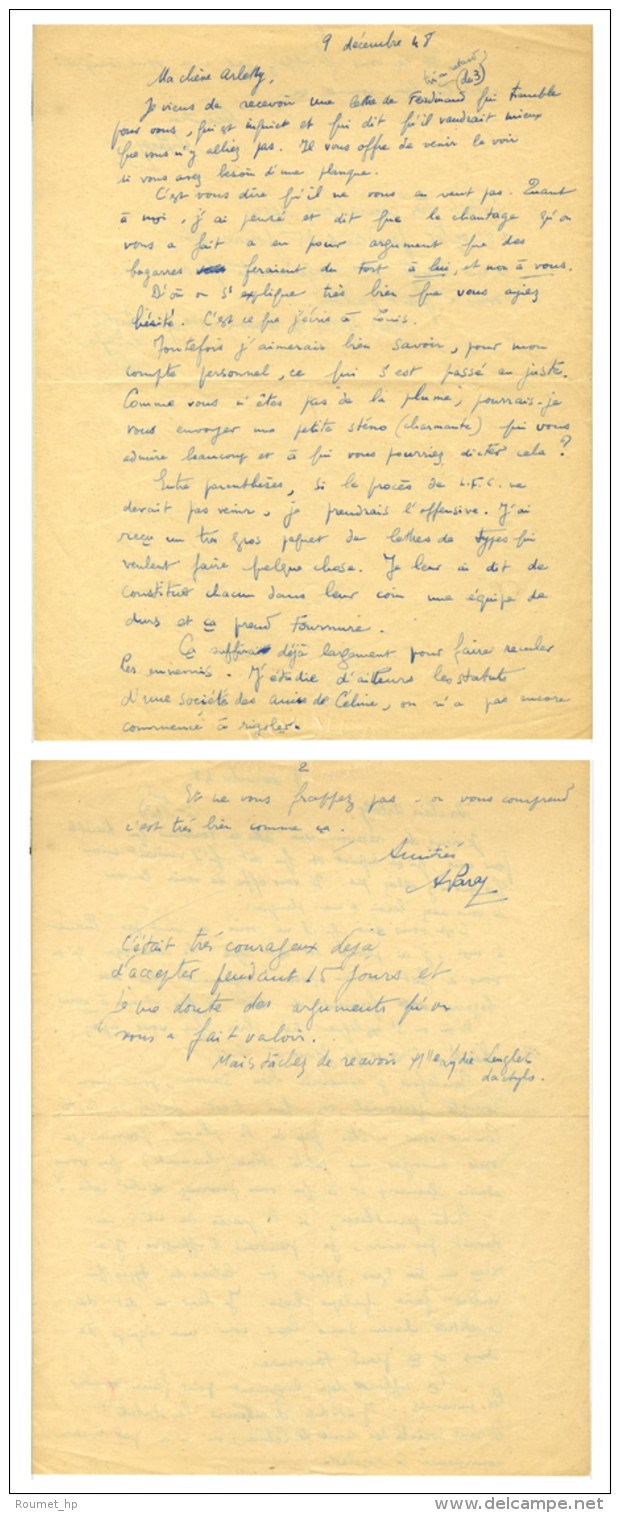 9 décembre 48
Ma chère Arletty,
(du 3)
Je viens de recevoir une lettre de Ferdinand qui tremble
pour vous, qui est inquiet et qui dit qu'il vaudrait mieux
que vous n'y alliez pas. Il vous offre de venir le voir
si vous avez besoin d'une planque.
C'est vous dire qu'il ne vous en veut pas. Quant
à moi, j'ai pensé et dit que le chantage qu'on
vous a fait a eu pour argument que des
bagarres feraient du tort à lui, et non à vous.
D'où on s'explique très bien que vous ayiez
hésité. C'est ce que j'écris à Louis.
Toutefois j'aimerais bien savoir, pour mon
compte personnel, ce qui s'est passé au juste.
Comme vous n'êtes pas de la plume, pourrais-je
vous envoyer une petite sténo (charmante) qui vous
admire beaucoup et à qui vous pourriez dicter cela ?
Entre parenthèses, si le procès de L.F.C. ne
devait pas venir, je prendrais l'offensive. J'ai
reçu un très gros paquet de lettres de types qui
veulent faire quelque chose. Je leur ai dit de
constituer chacun dans leur coin une équipe de
durs et ça prend tournure.
Ça suffirait déjà largement pour faire reculer
les ennemis. J'étudie d'ailleurs les statuts
d'une société des amis de Céline, on n'a pas encore
commencé à rigoler.
2
Et ne vous frappez pas - on vous comprend
c'est très bien comme ça.
Amitiés
A Paraz
C'était très courageux déjà
d'accepter pendant 15 jours et
je me doute des arguments qu'on
vous a fait valoir.
Mais tâchez de recevoir Mlle Lydie Lenglet
dactylo.
Roumet_hp
http://www.delcampe.net